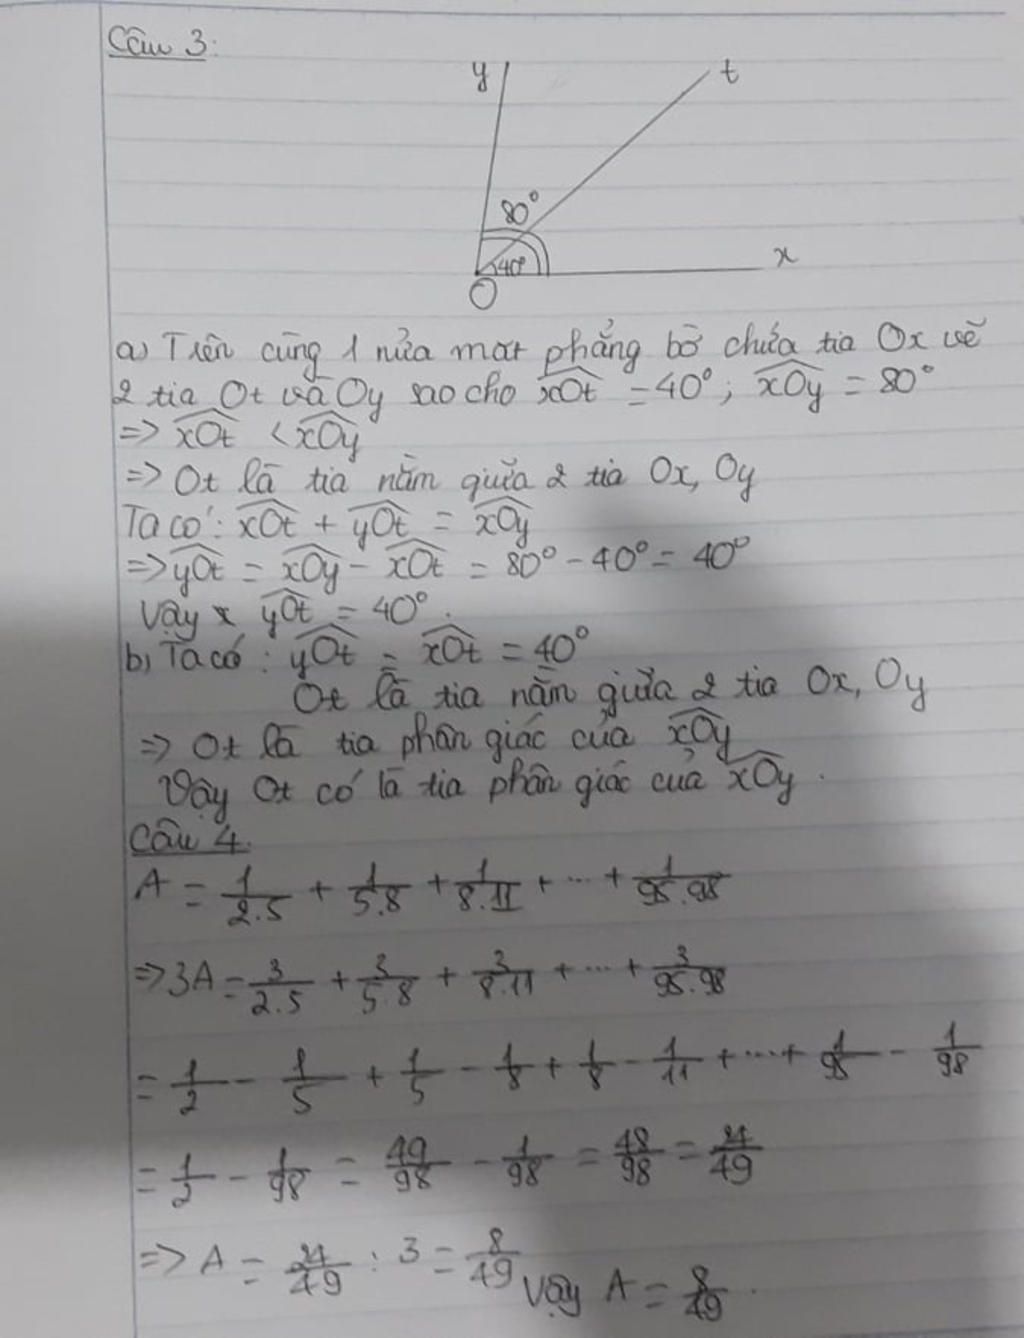 Câu 3:
y
t
80°
40°
x
O
a) Trên cùng 1 nửa mặt phẳng bờ chứa tia Ox vẽ
2 tia Ot và Oy sao cho xOt = 40°; xOy = 80°
=> xOt < xOy
=> Ot là tia nằm giữa 2 tia Ox, Oy
Ta có: xOt + yOt = xOy
=> yOt = xOy - xOt = 80° - 40° = 40°
Vậy yOt = 40°.
b) Ta có: yOt = xOt = 40°
Ot là tia nằm giữa 2 tia Ox, Oy
=> Ot là tia phân giác của xOy
Vậy Ot có là tia phân giác của xOy.
Câu 4.
A = 1/2.5 + 1/5.8 + 1/8.11 + ... + 1/95.98
=> 3A = 3/2.5 + 3/5.8 + 3/8.11 + ... + 3/95.98
= 1/2 - 1/5 + 1/5 - 1/8 + 1/8 - 1/11 + ... + 1/95 - 1/98
= 1/2 - 1/98 = 49/98 - 1/98 = 48/98 = 24/49
=> A = 24/49 : 3 = 8/49 Vậy A = 8/49.